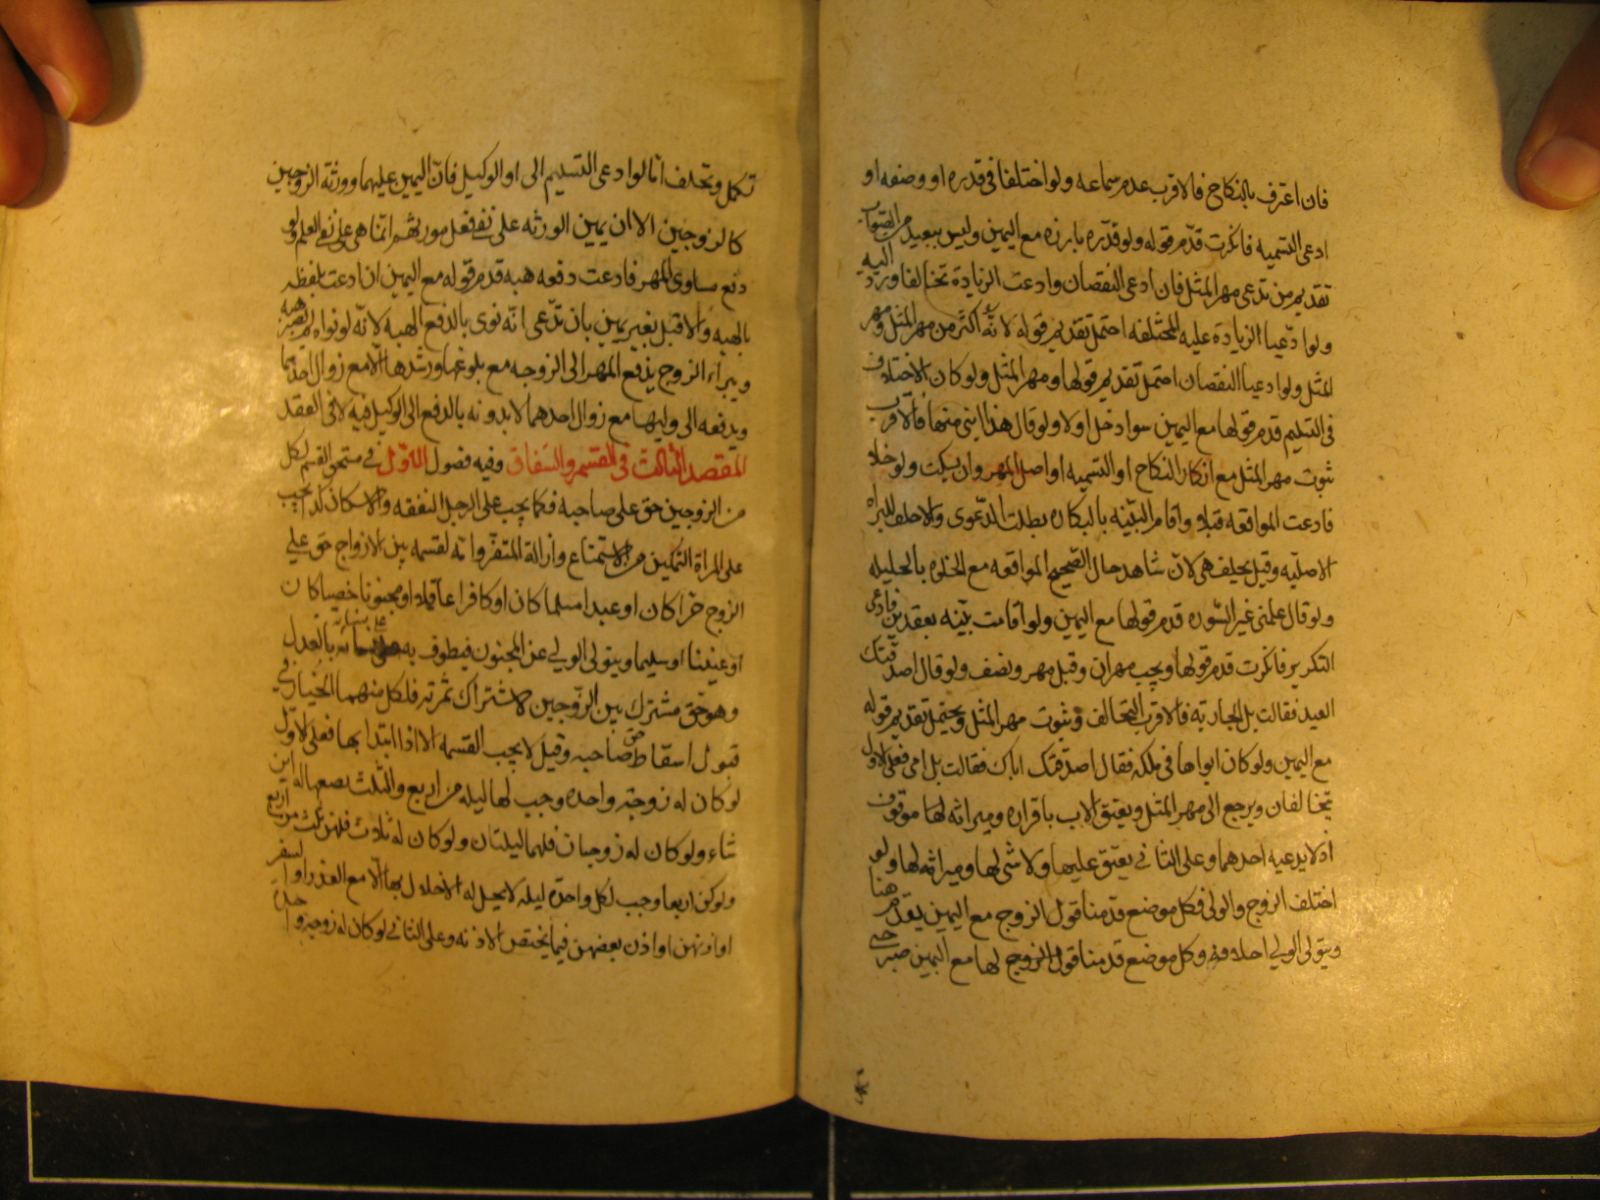 فان اعترف بالنكاح فالاقرب عدم سماعه ولو اختلفا فى قدره او وصفه او
ادعى التسميه فانكرت قدم قوله ولو قدره بارزه مع اليمين وليس ببعيد من الصواب
تقديم من تدعى مهر المثل فان ادعى النقصان وادعت الزيادة تحالفا ورد اليه
ولو ادعيا الزيادة عليه المختلفه احتمل تقديم قوله لانه اكثر من مهر المثل ومهر
المثل ولو ادعيا النقصان احتمل تقديم قولها ومهر المثل ولو كان الاختلاف
فى التسليم قدم قولها مع اليمين سوا دخل اولا ولو قال هذا ابنى منها فالاقرب
ثبوت مهر المثل مع انكار النكاح او التسميه او اصل المهر وان يسكت ولو خلا
فادعت المواقعه قبلا واقام البينه بالبكاره بطلت الدعوى والاحلف للبراه
الاصليه وقيل يحلف هى لان شاهد حال الصحيح المواقعه مع الخلوه بالحليله
ولو قال علمنى غير السوره قدم قولها مع اليمين ولو اقامت بينه بعقدين فادعى
التكرير فانكرت قدم قولها ويجب مهران وقيل مهر ونصف ولو قال اصدقتك
العبد فقالت بل الجاريه فالاقرب التحالف وثبوت مهر المثل ويحتمل تقديم قوله
مع اليمين ولو كان ابواها فى ملكه فقال اصدقتك اباك فقالت بل امى فعلى الاول
يتحالفان ويرجع الى مهر المثل ويعتق الاب باقراره وميراثه لها موقوف
اذ لا يدعيه احدهما وعلى الثانى يعتق عليها ولا شى لها وميراثه لها ولو
اختلف الزوج والولى فكل موضع قدمنا قول الزوج مع اليمين يقدم هنا
ويتولى الولى احلافه وكل موضع قدمنا قول الزوجه لها مع اليمين صبر حتى
تكمل وتحلف اما لو ادعى التسليم الى او الوكيل فان اليمين عليهما وورثه الزوجين
كالزوجين الا ان يمين الورثه على نفى فعل مورثهم انما هى على نفى العلم ولو
دفع مساوى المهر فادعت دفعه هبه قدم قوله مع اليمين ان ادعت بلفظه
بالهبه والا قبل بغير يمين بان تدعى انه نوى بالدفع الهبه لانه لو نواه لم يصر هبه
ويبراء الزوج بدفع المهر الى الزوجه مع بلوغها ورشدها لا مع زوال احدهما
وبدفعه الى وليها مع زوال احدهما لا بدونه بالدفع الى الوكيل فيه لا فى العقد
المقصد الثالث فى القسم والشقاق وفيه فصول الاول فى مستحق القسم لكل
من الزوجين حق على صاحبه فكما يجب على الرجل النفقه والاسكان كذا يجب
على المراة التمكين من الاستمتاع وازالة المنفر وانه لقسمه بين الازواج حق على
الزوج حرا كان او عبدا مسلما كان او كافرا عاقلا او مجنونا خصيا كان
او عنينا او سليما ويتولى الولى عن المجنون فيطوف به على نسائه بالعدل
وهو حق مشترك بين الزوجين لاشتراك ثمرته فلكل منهما الخيار فى
قبول اسقاط حق صاحبه وقيل لا يجب القسمه الا اذا ابتدا بها فعلى الاول
لو كان له زوجه واحده وجب لها ليله من اربع والثلث يضعها له اين
شاء ولو كان له زوجات فلهما ليلتان ولو كان له ثلاث فلهن ثلث من اربع
ولو كن اربعا وجب لكل واحدة ليله لا يحل له الاخلال بها الا مع العذر او السفر
او اذنهن او اذن بعضهن فيما يختص الاذنه وعلى الثانى لو كان له زوجه واحدة